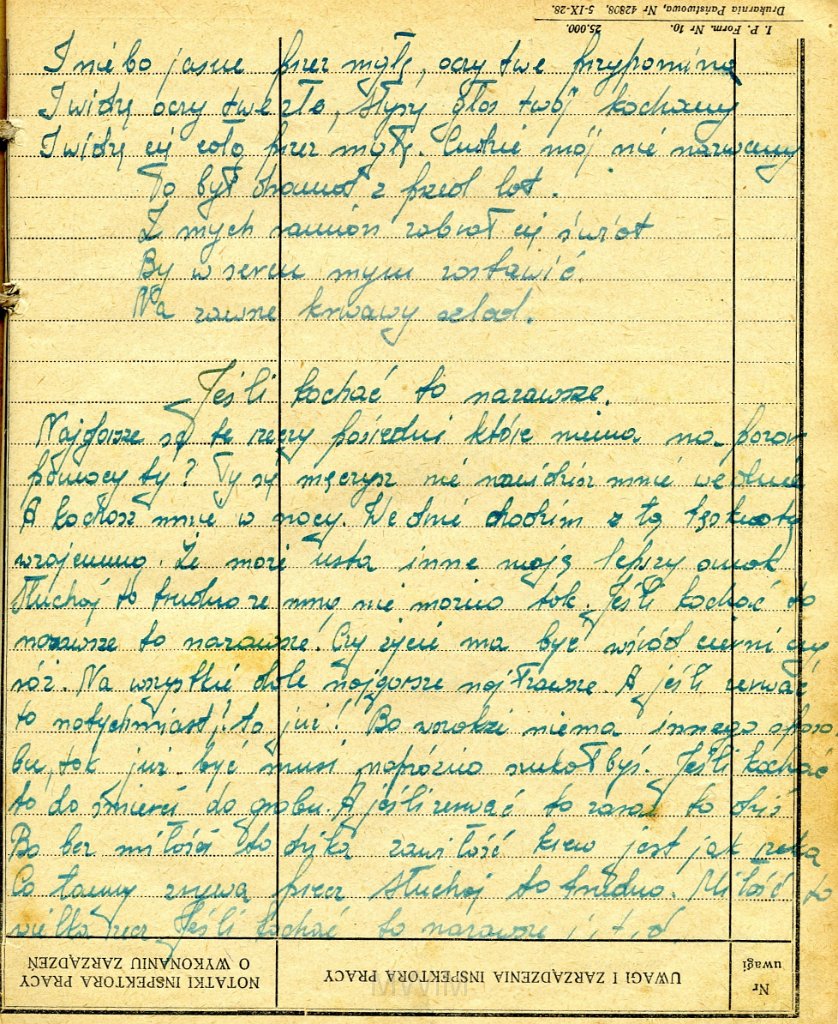 I. P. Form. Nr 10. 25.000.
Drukarnia Państwowa, Nr 42808. 5-IX-28.
I niebo jasne przez mgłę, oczy twe przypominą
I widzę oczy twe zło, słyszę głos twój kochany
I widzę cię cało przez mgłę. Cudzie mój nie nazwany
To był dramat z przed lat.
Z mych ramion zabrał cię świat
By w sercu mym zostawić.
Na zawsze krwawy szlad.
Jeśli kochać to nazawsze.
Najgorsze są te rzeczy pośredni które niema na
ty? Ty się męczysz nie nawidzisz mnie we dnie
A kochasz mnie w nocy. We dnie chodzim z tą tęsknotą
wzajemną. Że może usta inne mają lepszy smak
Słuchaj to trudno ze mną nie można tak. Jeśli kochać to
nazawsze to nazawsze. Czy życie ma być wśród cierni czy
róż. Na wszystkie dole najgorsze najłzawsze. A jeśli zerwać
to natychmiast! to już! Bo wrodzi niema innego sposo
bu, tak już być musi napróżno szukał byś. Jeśli kochać
to do śmierci do grobu. A jeśli zerwać to zaraz to dziś
Bo bez miłości to dzika zawiłość krew jest jak rzeka
Co tamy zrywa precz słuchaj to trudno. Miłość to
wielka rzecz Jeśli kochać to nazawsze i, t, d,
NOTATKI INSPEKTORA PRACY O WYKONANIU ZARZĄDZEŃ
UWAGI I ZARZĄDZENIA INSPEKTORA PRACY
Nr uwagi